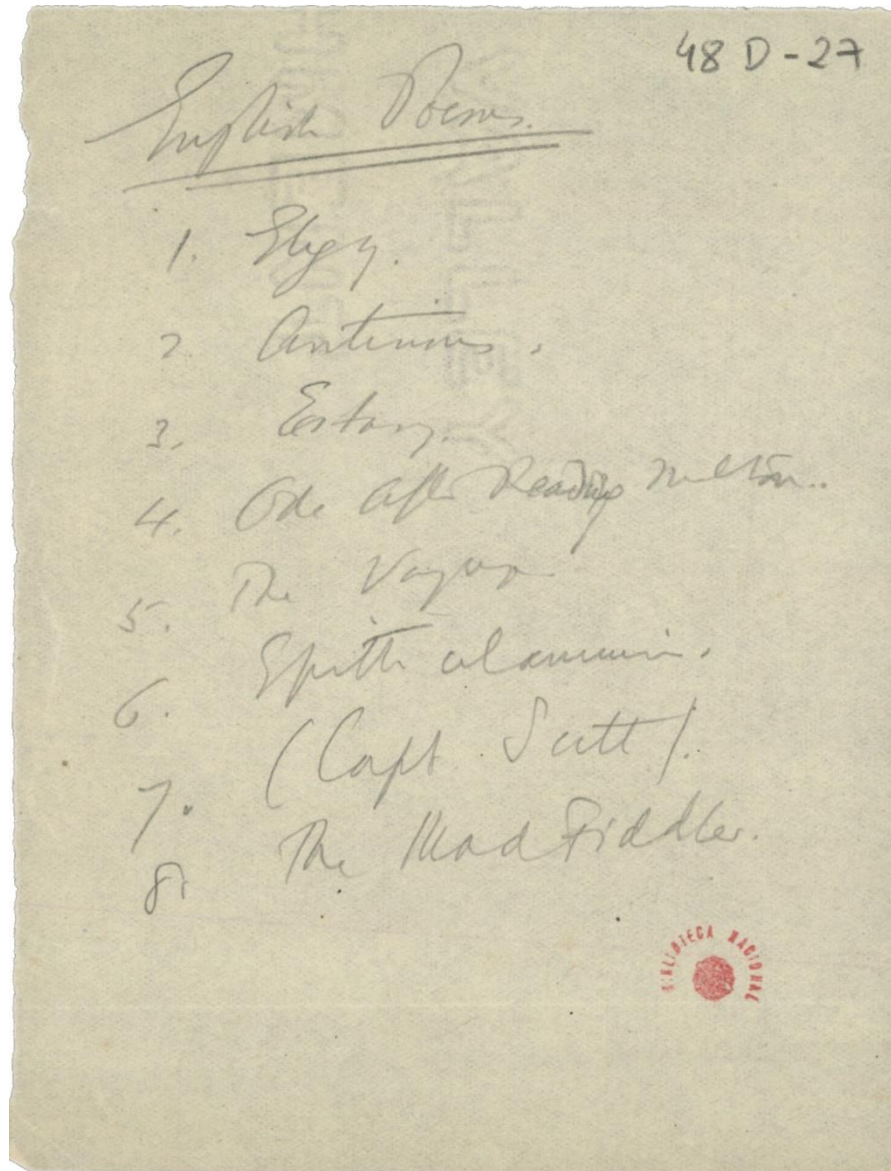 48 D-27
English Poems.
1. Elegy.
2. Antinous.
3. Ecstasy.
4. Ode After Reading Milton..
5. The Voyage
6. Epithalamium.
7. (Capt. Scott).
8. The Mad Fiddler.
BIBLIOTECA NACIONAL